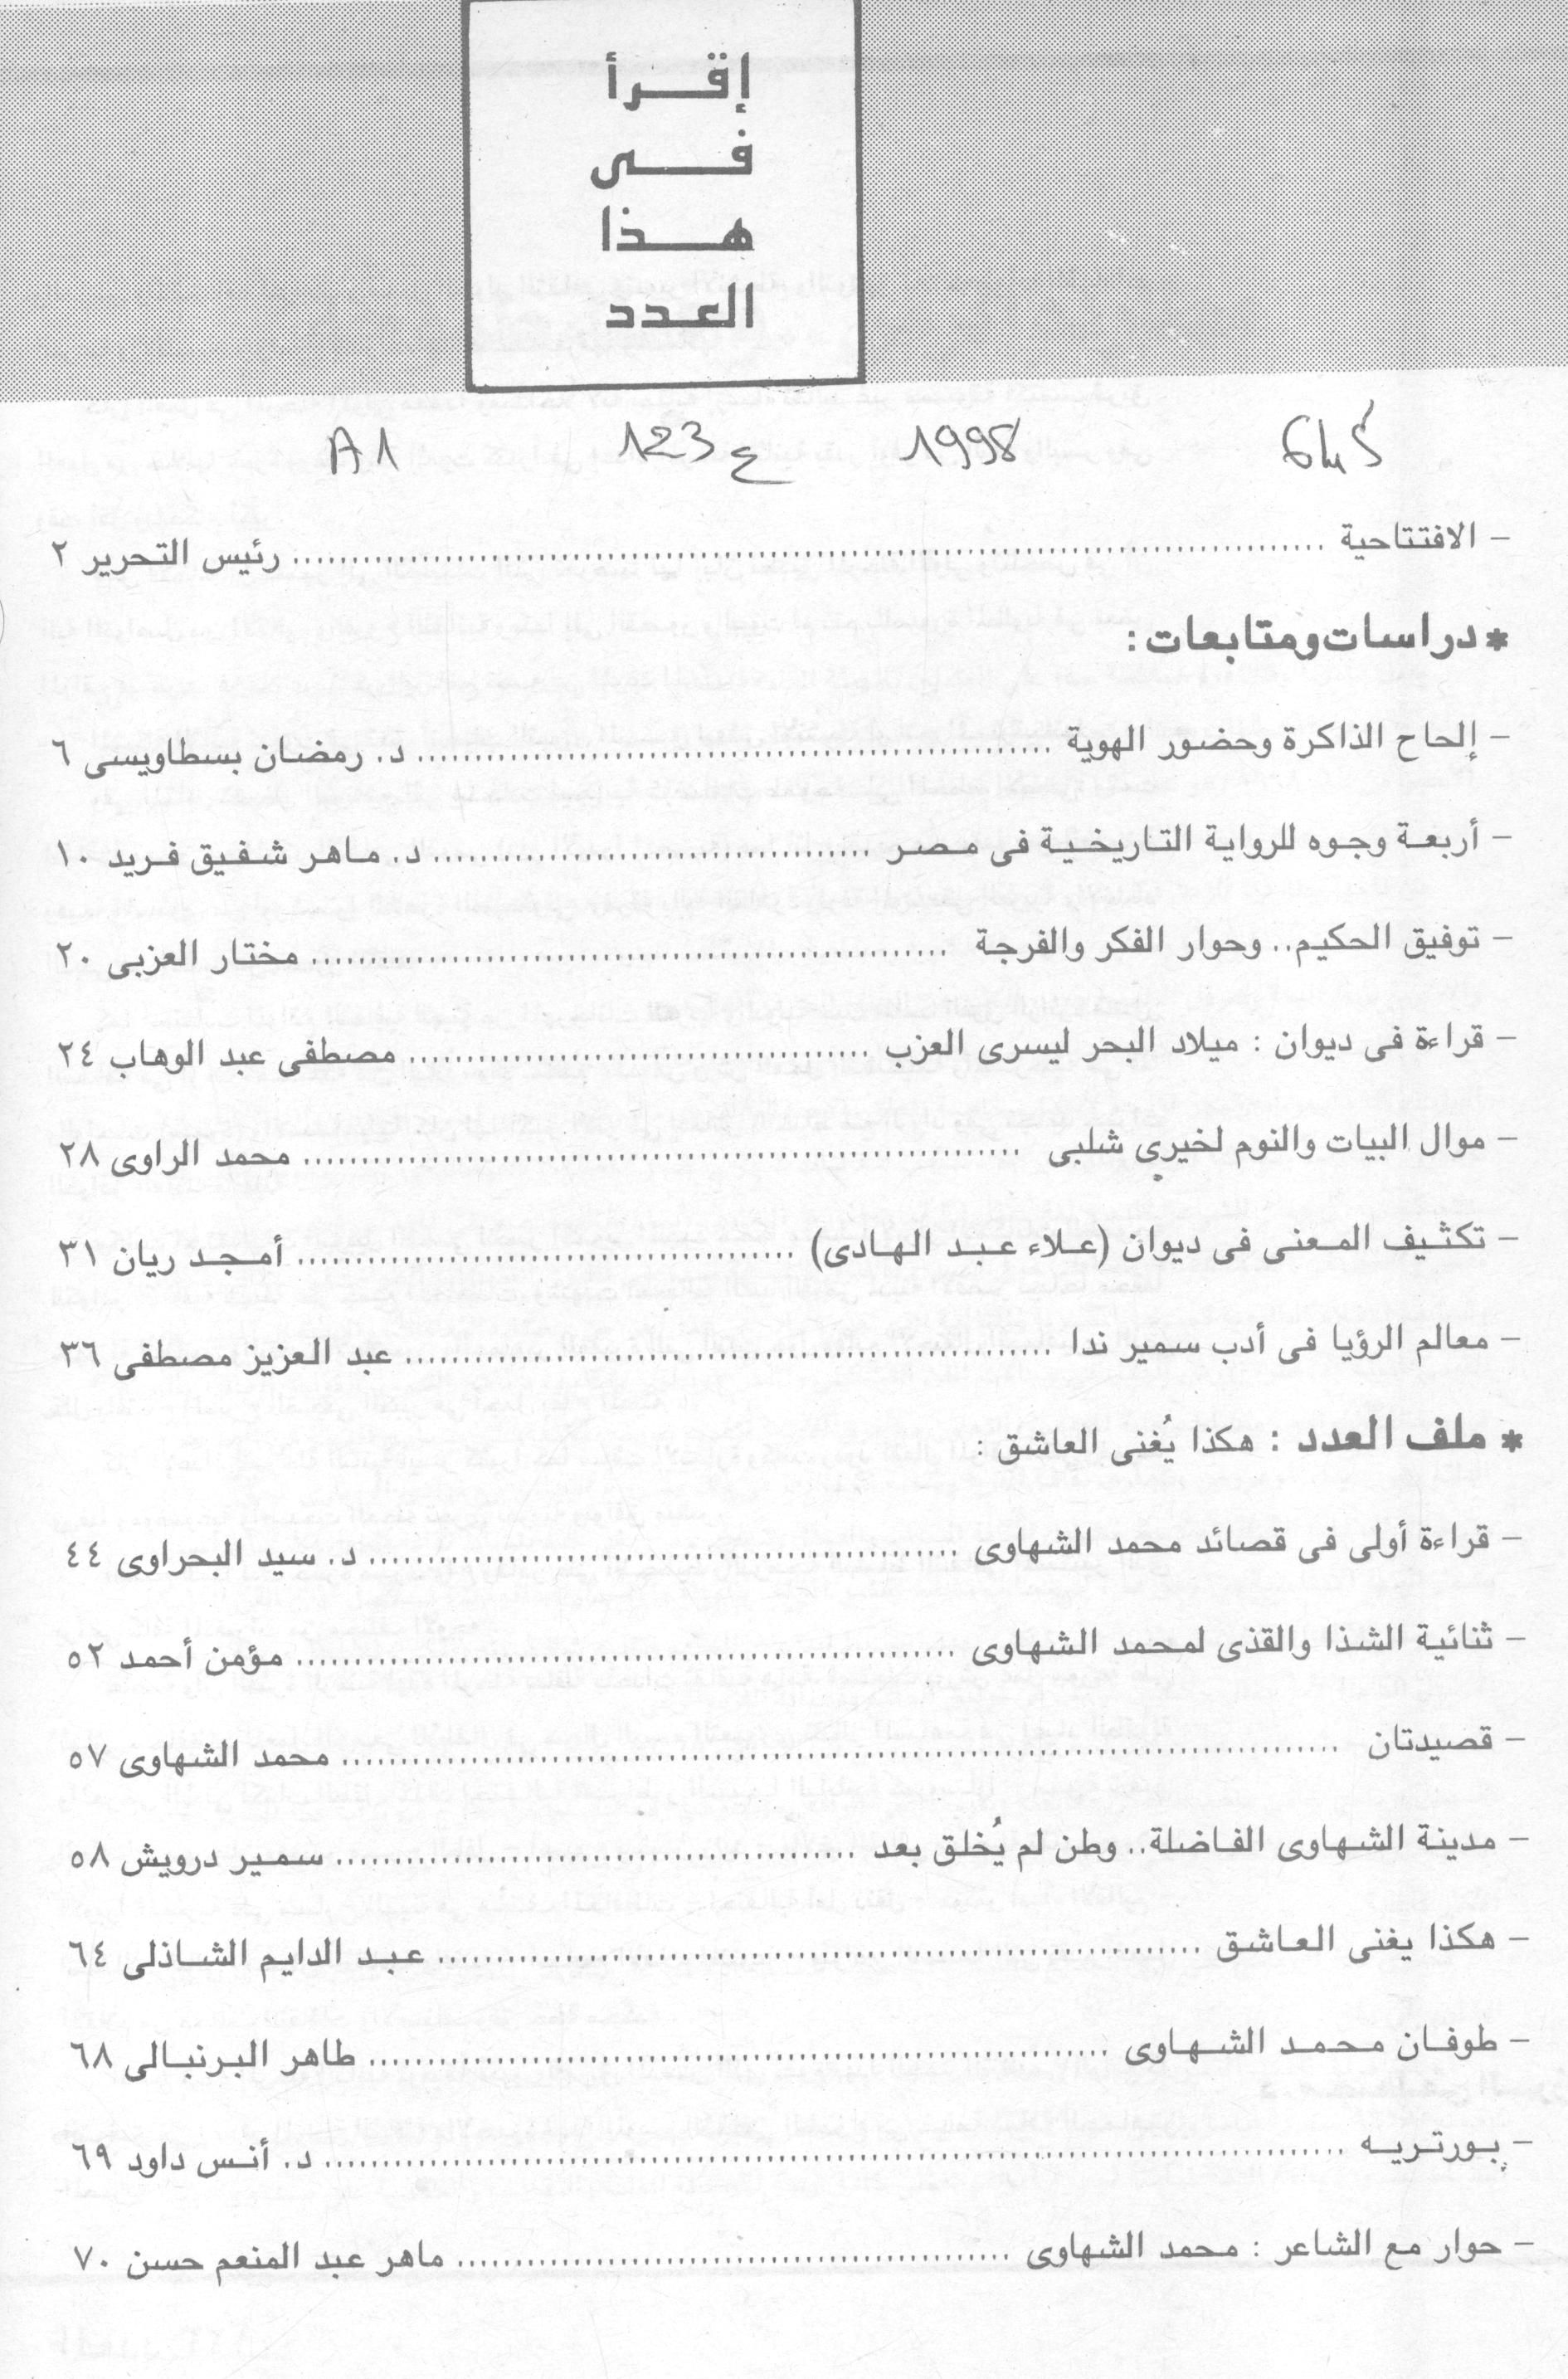 إقرأ
فى
هذا
العدد
1998 ع 123 A1
- الافتتاحية ........ رئيس التحرير ٢
* دراسات ومتابعات :
- إلحاح الذاكرة وحضور الهوية ........ د. رمضان بسطاويسى ٦
- أربعة وجوه للرواية التاريخية فى مصر ........ د. ماهر شفيق فريد ١٠
- توفيق الحكيم.. وحوار الفكر والفرجة ........ مختار العزبى ٢٠
- قراءة فى ديوان : ميلاد البحر ليسرى العزب ........ مصطفى عبد الوهاب ٢٤
- موال البيات والنوم لخيرى شلبى ........ محمد الراوى ٢٨
- تكثيف المعنى فى ديوان (علاء عبد الهادى) ........ أمجد ريان ٣١
- معالم الرؤيا فى أدب سمير ندا ........ عبد العزيز مصطفى ٣٦
* ملف العدد : هكذا يُغنى العاشق :
- قراءة أولى فى قصائد محمد الشهاوى ........ د. سيد البحراوى ٤٤
- ثنائية الشذا والقذى لمحمد الشهاوى ........ مؤمن أحمد ٥٢
- قصيدتان ........ محمد الشهاوى ٥٧
- مدينة الشهاوى الفاضلة.. وطن لم يُخلق بعد ........ سمير درويش ٥٨
- هكذا يغنى العاشق ........ عبد الدايم الشاذلى ٦٤
- طوفان محمد الشهاوى ........ طاهر البرنبالى ٦٨
- بورتريه ........ د. أنس داود ٦٩
- حوار مع الشاعر : محمد الشهاوى ........ ماهر عبد المنعم حسن ٧٠